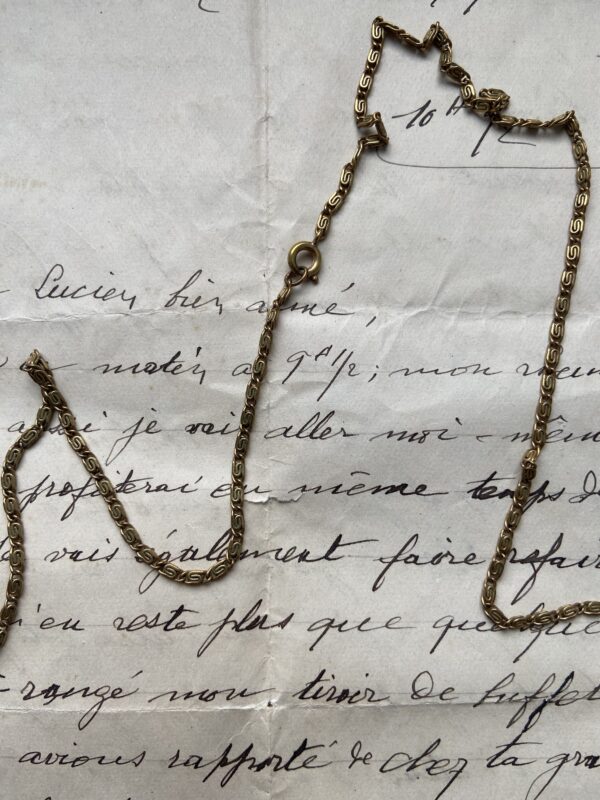 10 h 1/2
Lucien bien aimé,
matin à 9 h 1/2; mon
aussi je vais aller moi-même
profiterai en même temps de
vais également faire refaire
n'en reste plus que quelque
rangé mon tiroir de buffet
avions rapporté de chez ta